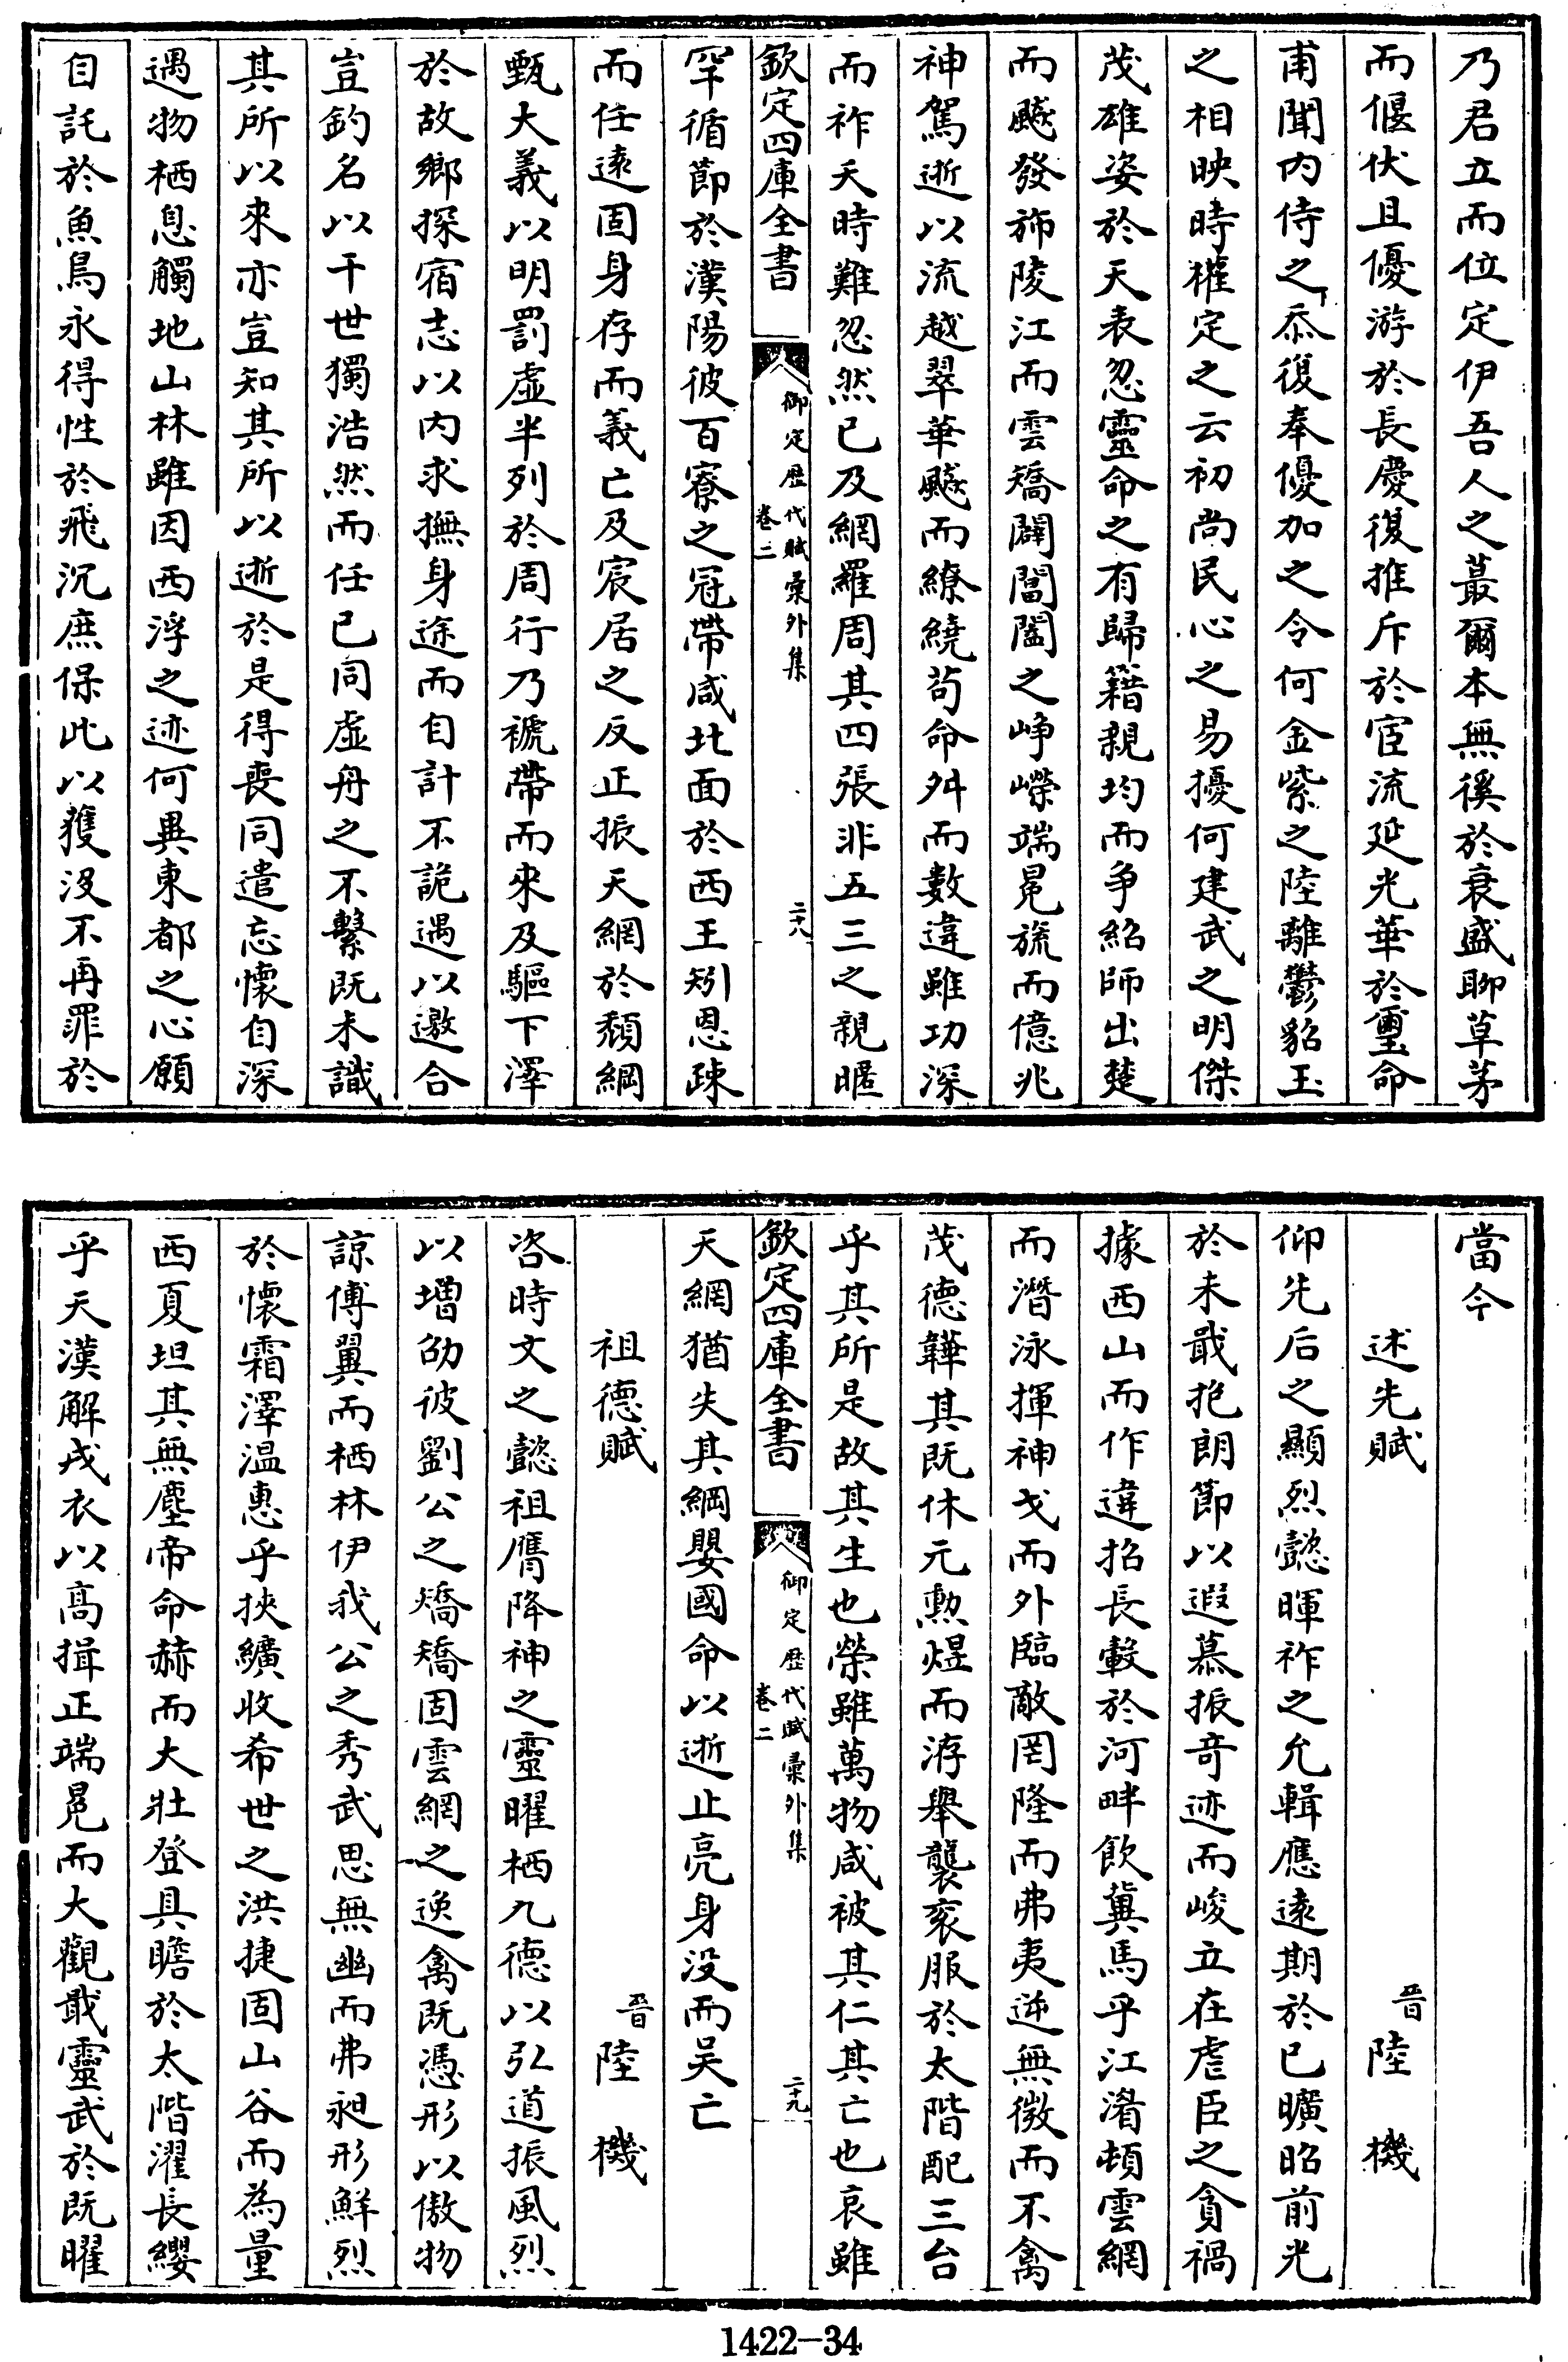 乃君立而位定伊吾人之蕞爾本無徯於衰盛聊草茅
而偃伏且優游於長慶復推斥於宦流延光華於璽命
甫聞内侍之忝復奉優加之令何金紫之陸離鬱貂玉
之相映時權定之云初尚民心之易擾何建武之明傑
茂雄姿於天表忽靈命之有歸籍親均而爭紹師出楚
而飈發斾陵江而雲矯闢閶闔之崢嶸端冕旒而億兆
神駕逝以流越翠華飈而繚繞苟命舛而數違雖功深
而祚夭時難忽然已及網羅周其四張非五三之親暱
欽定四庫全書
御定歴代賦彙外集
卷二
二十八
罕循節於漢陽彼百寮之冠帶咸北面於西王矧恩疎
而任逺固身存而義亡及宸居之反正振天網於頽綱
甄大義以明罰虚半列於周行乃褫帶而來及驅下澤
於故鄉探宿志以内求撫身途而自計不詭遇以邀合
豈釣名以干世獨浩然而任已同虚舟之不繫既未識
其所以來亦豈知其所以逝於是得喪同遣忘懷自深
遇物栖息觸地山林雖因西浮之迹何異東都之心願
自託於魚鳥永得性於飛沉庶保此以獲没不再罪於
當今
述先賦
晉陸機
仰先后之顯烈懿暉祚之允輯應逺期於已曠昭前光
於未戢抱朗節以遐慕振奇迹而峻立在虐臣之貪禍
據西山而作違招長轂於河畔飲冀馬乎江湄頓雲網
而潛泳揮神戈而外臨敵罔隆而弗夷逆無微而不禽
茂德韡其既休元勲煜而洊舉襲衮服於太階配三台
乎其所是故其生也榮雖萬物咸被其仁其亡也哀雖
欽定四庫全書
御定歴代賦彙外集
卷二
二十九
天網猶失其綱嬰國命以逝止亮身没而吴亡
祖德賦
晉陸機
咨時文之懿祖膺降神之靈曜栖九德以弘道振風烈
以增劭彼劉公之矯矯固雲網之逸禽既憑形以傲物
諒傅翼而栖林伊我公之秀武思無幽而弗昶形鮮烈
於懷霜澤温惠乎挾纊收希世之洪捷固山谷而為量
西夏坦其無塵帝命赫而大壯登具瞻於太階濯長纓
乎天漢解戎衣以髙揖正端冕而大觀戢靈武於既曜
1422-34